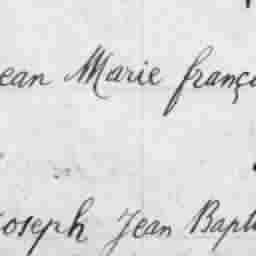 ean Marie franço
oseph Jean Bapt